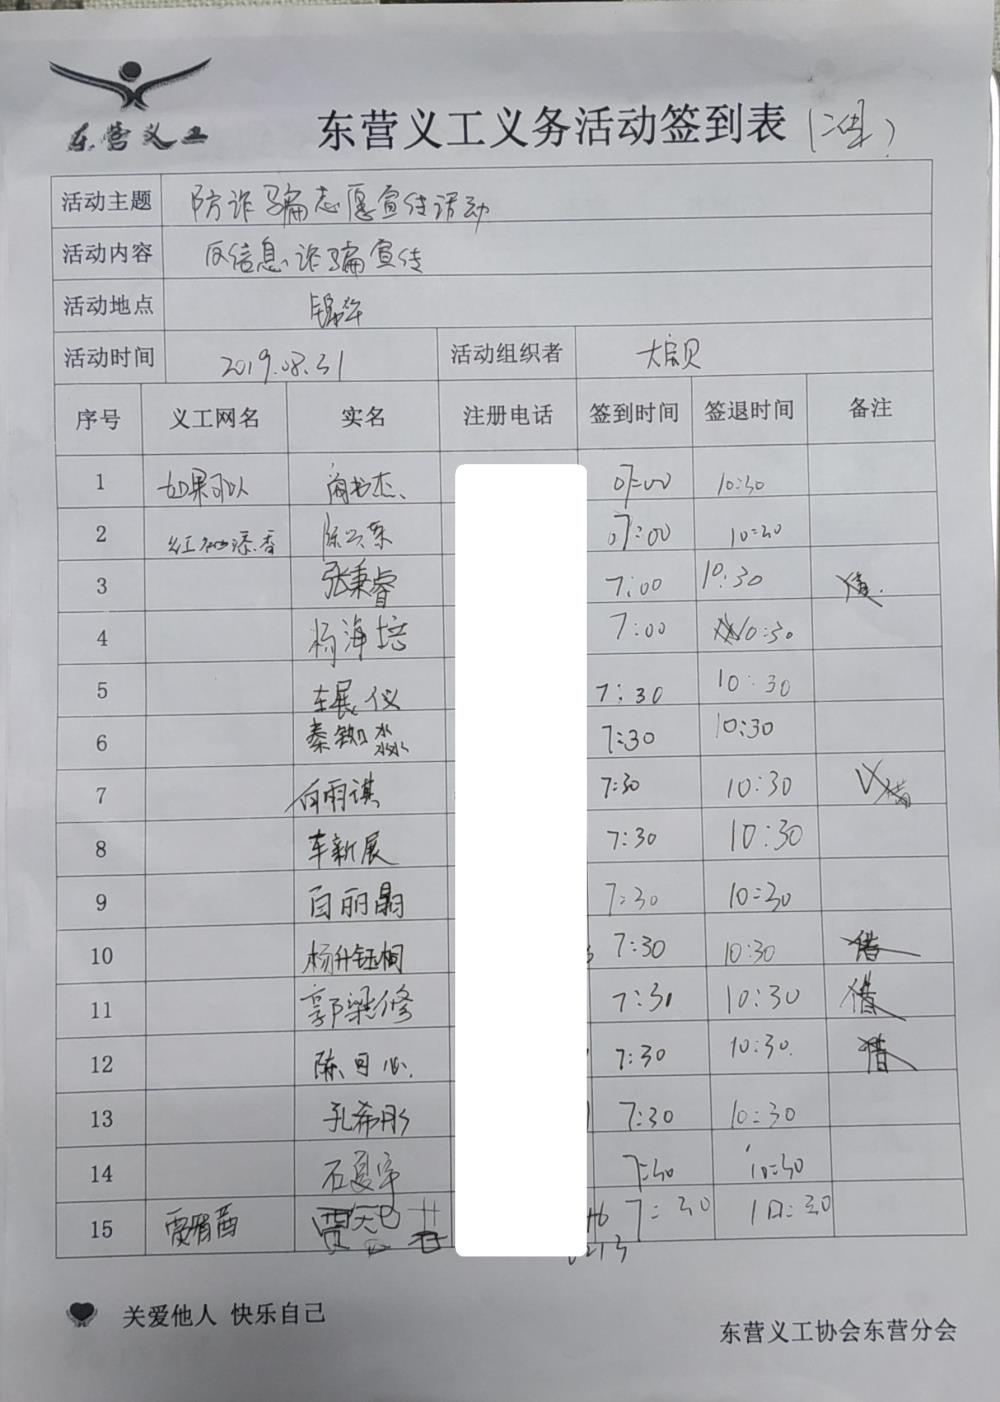 东营义工
东营义工义务活动签到表
活动主题 防诈骗志愿宣传活动
活动内容 反信息诈骗宣传
活动地点 锦华
活动时间 2019.08.31 活动组织者
序号 义工网名 实名 注册电话 签到时间 签退时间 备注
1 如果可以 07:00 10:30
2 红袖添香 07:00 10:30
3 张秉睿 7:00 10:30
4 杨海培 7:00 10:30
5 车展仪 7:30 10:30
6 秦知淼 7:30 10:30
7 白雨谋 7:30 10:30
8 车新展 7:30 10:30
9 白丽晶 7:30 10:30
10 杨升钰桐 7:30 10:30 借
11 郭梁修 7:30 10:30 借
12 陈可心 7:30 10:30 借
13 孔希彤 7:30 10:30
14 石夏宇 7:30 10:30
15 7:30 10:30
关爱他人 快乐自己
东营义工协会东营分会